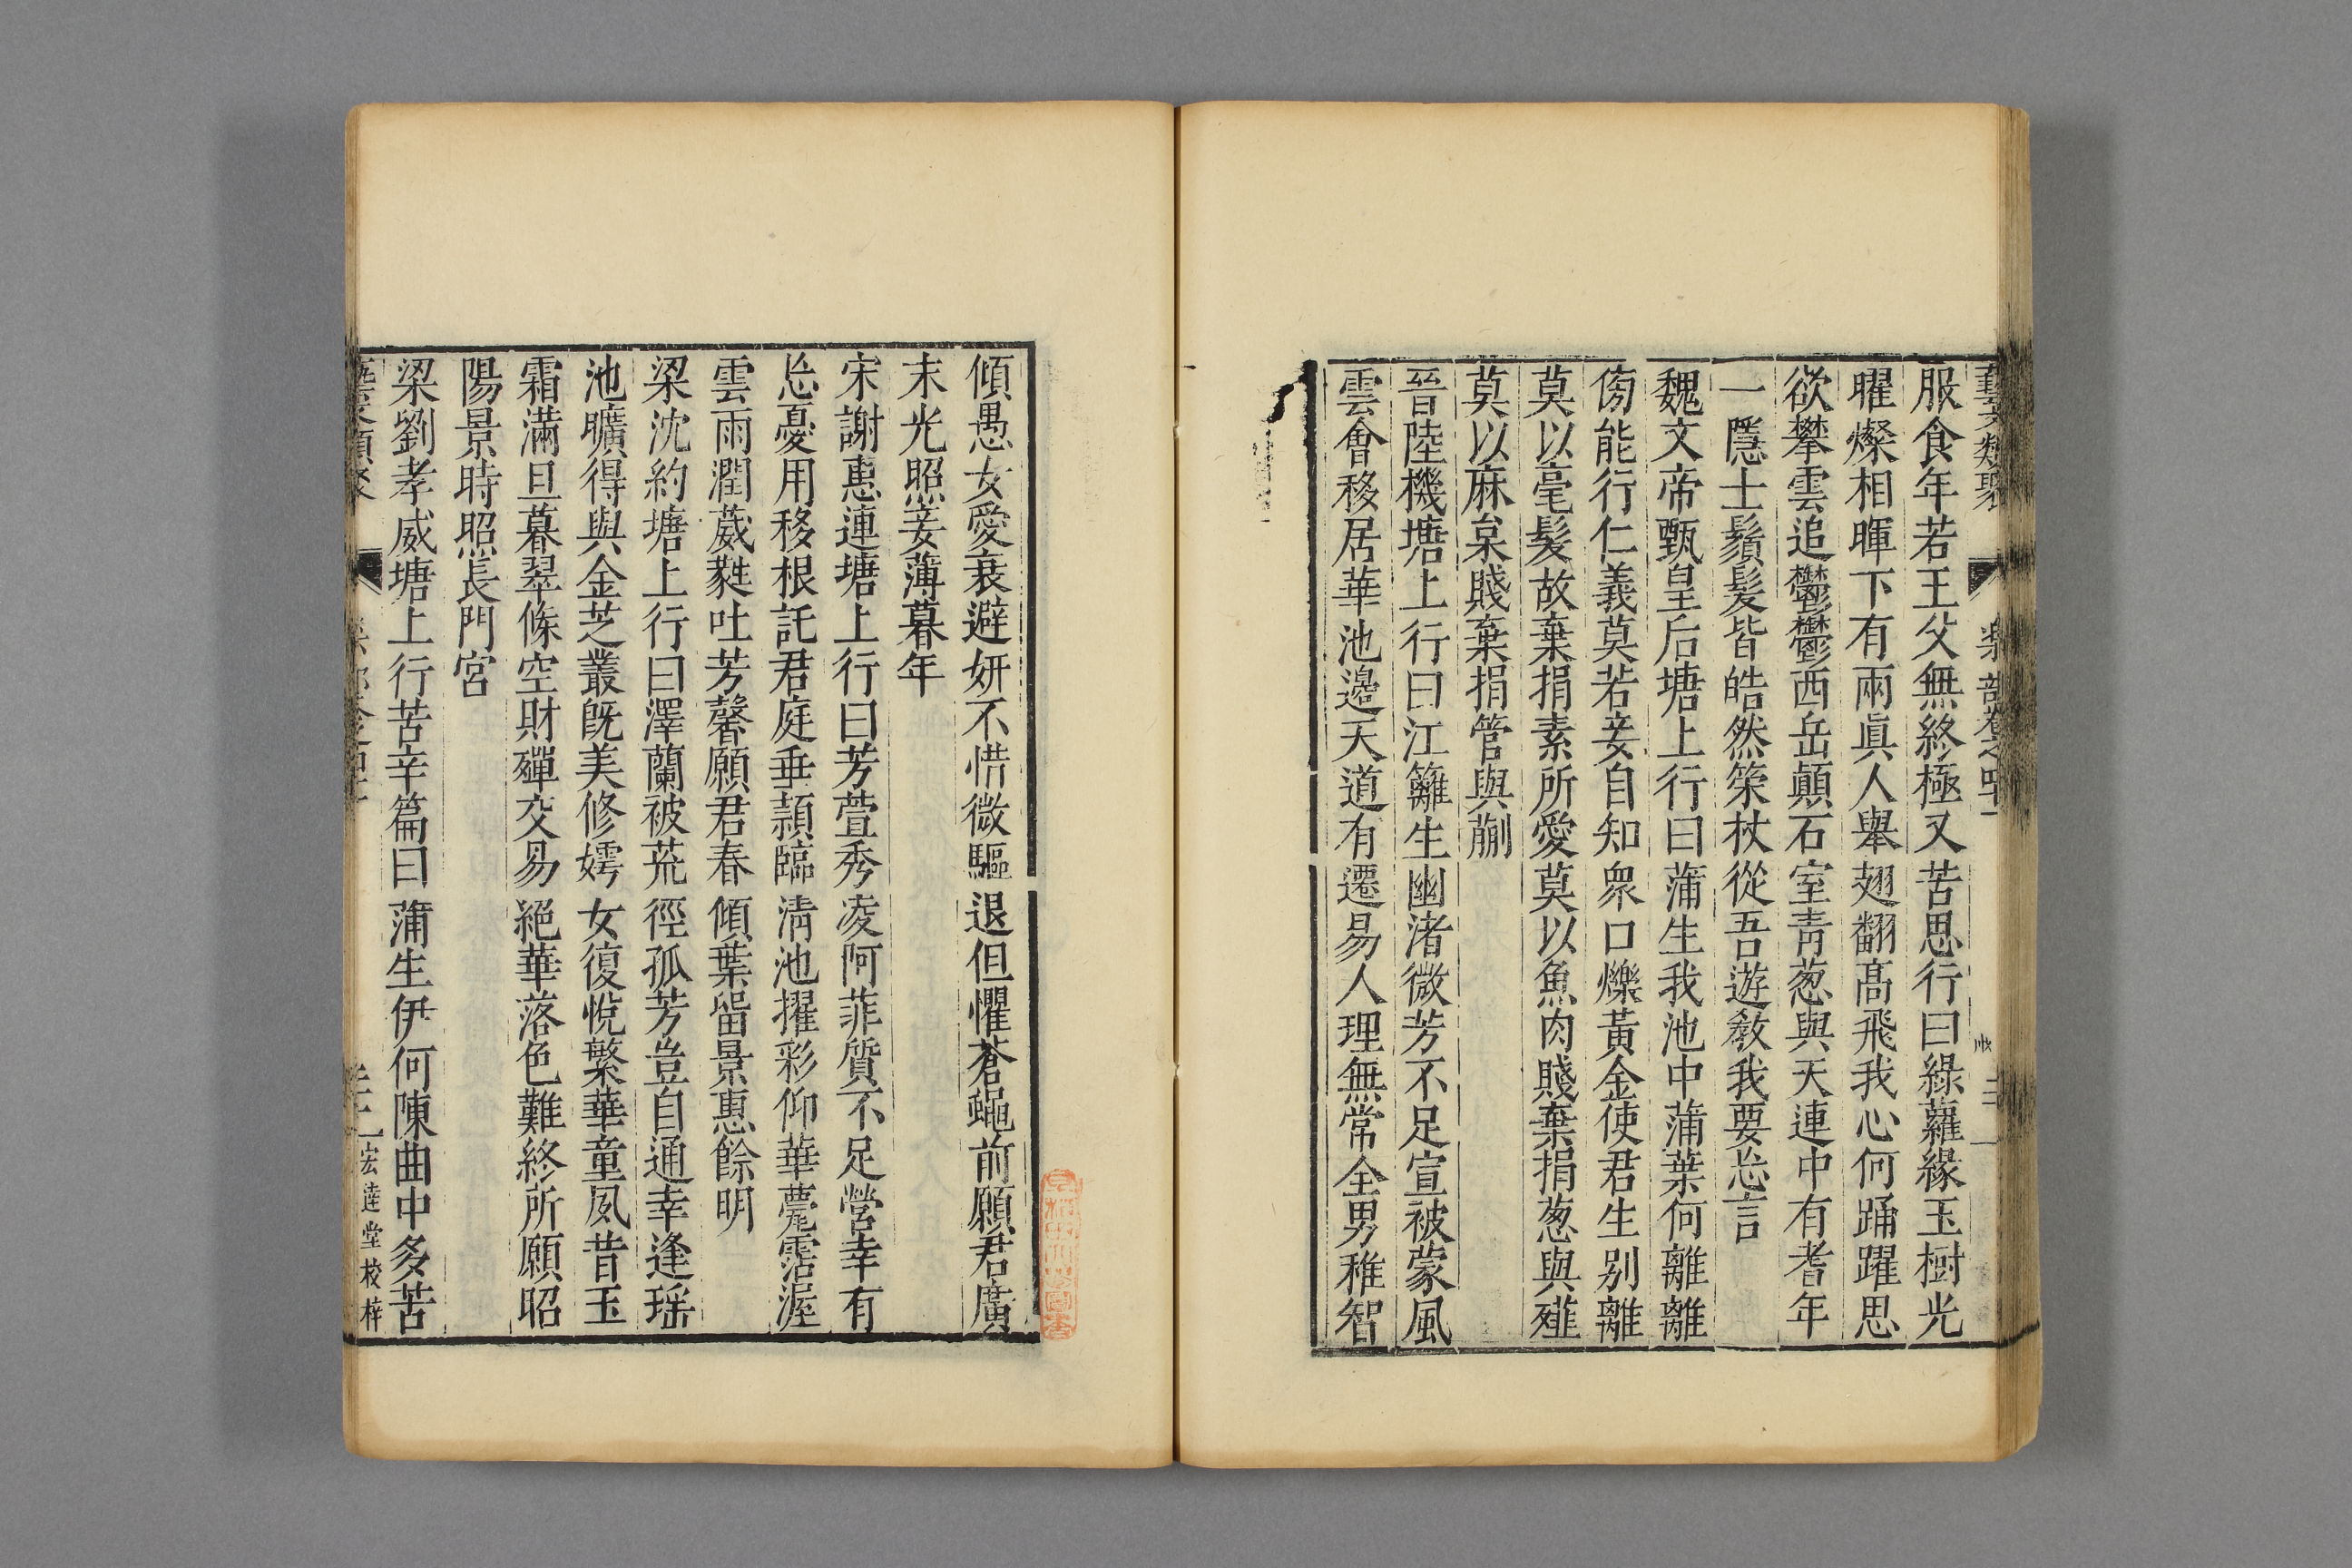 藝文類聚 樂部卷之四十一
服食年若王父無終極又苦思行曰綠蘿緣玉樹光
曜燦相暉下有兩眞人舉翅翻髙飛我心何踊躍思
欲攀雲追鬱鬱西岳顚石室靑葱與天連中有耆年
一隱士鬚髪皆皓然策杖從吾遊敎我要忘言
魏文帝甄皇后塘上行曰蒲生我池中蒲葉何離離
傍能行仁義莫若妾自知衆口爍黃金使君生别離
莫以毫髪故棄捐素所愛莫以魚肉賤棄捐葱與薤
莫以麻枲賤棄捐管與蒯
晉陸機塘上行曰江籬生幽渚微芳不足宣被蒙風
雲會移居華池邊天道有遷易人理無常全男稚智
傾愚女愛衰避妍不惜微驅退但懼蒼蠅前願君廣
末光照妾薄暮年
宋謝惠連塘上行曰芳萱秀凌阿菲質不足營幸有
忘憂用移根託君庭垂頴臨淸池擢彩仰華甍霑渥
雲雨潤葳蕤吐芳馨願君春傾葉留景惠餘明
梁沈約塘上行曰澤蘭被荒徑孤芳豈自通幸逢瑤
池曠得與金芝叢旣美修嫮女復悅繁華童夙昔玉
霜滿旦暮翠條空財殫交易絕華落色難終所願昭
陽景時照長門宮
梁劉孝威塘上行苦辛篇曰蒲生伊何陳曲中多苦
宏逹堂校梓